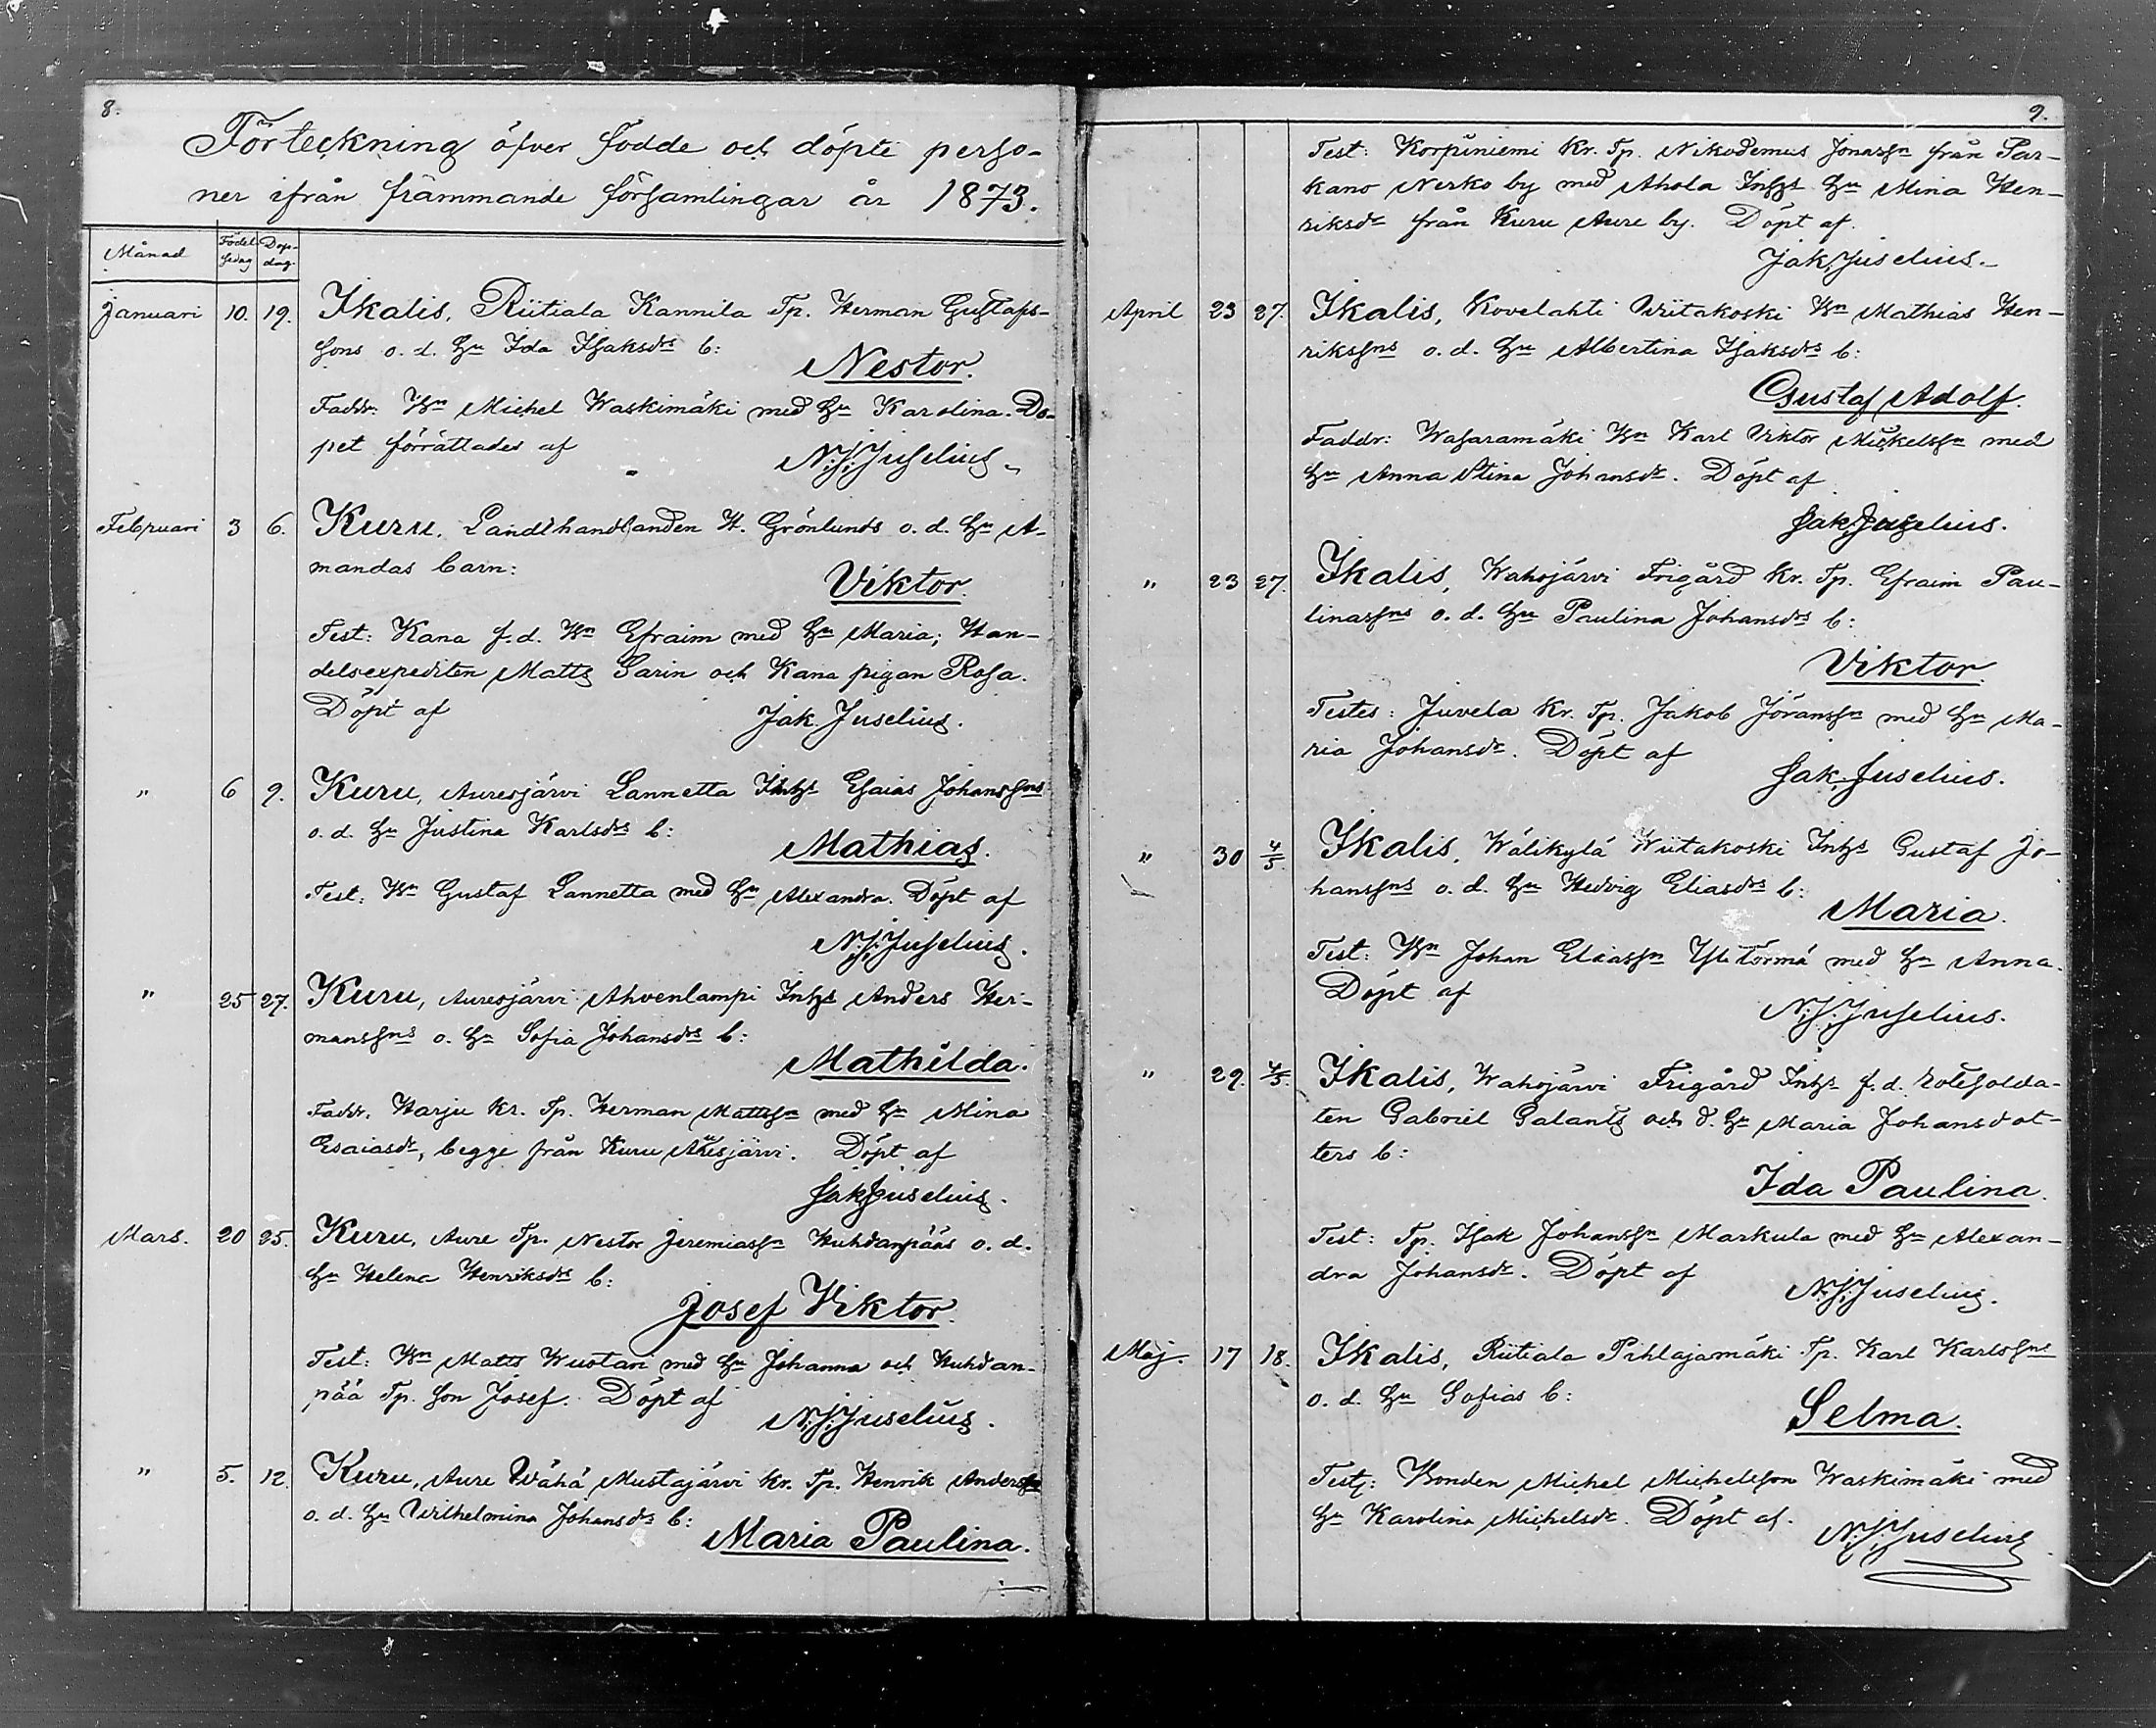 8.
Förteckning öfver födde och döpte perso-
ner ifrån främmande församlingar år 1873.
Månad
Födel
sedag
Dop-
dag.
Januari 10. 19. Ikalis, Riitiala Kannila Tp. Herman Gustafs-
sons o. d. hu Ida Isaksdrs b:
Nestor.
Faddr: Bn Michel Waskimäki med hu Karolina. Do-
pet förrättades af
N. J. Juselius
Februari 3 6. Kuru. Landthandlanden H. Grönlunds o. d. hu A-
mandas barn:
Viktor.
Test: Kana f. d. Bn Efraim med hu Maria; Han-
delsexpediten Matts Sarin och Kana pigan Rosa.
Döpt af
Jak. Juselius.
" 6 9. Kuru, Auresjärvi Lannetta Inhs Esaias Johanssns
o. d. hu Justina Karlsdrs b:
Mathias.
Test: Bn Gustaf Lannetta med hu Alexandra. Döpt af
N. J. Juselius.
" 25 27. Kuru, Auresjärvi Ahvenlampi Inhs Anders Her-
manssns o. hu Sofia Johansdrs b:
Mathilda.
Faddr. Harju Kr. Tp. Herman Mattssn med hu Mina
Esaiasdr, begge från Kuru Auresjärvi. Döpt af
Jak. Juselius.
Mars. 20 25. Kuru, Aure Tp. Nestor Jeremiassn Huhdanpääs o. d.
hu Helena Henriksdrs b:
Josef Viktor.
Test: Bn Matts Wuotari med hu Johanna och Huhdan-
pää Tp. son Josef. Döpt af
N. J. Juselius.
" 5. 12. Kuru, Aure Wähä Mustajärvi Kr. Tp. Henrik Anderssn
o. d. hu Wilhelmina Johansdrs b:
Maria Paulina.
9.
Test: Korpiniemi Kr. Tp. Nikodemus Jonassn från Par-
kano Nerko by med Ahola Inhs hu Mina Hen-
riksdr från Kuru Aure by. Döpt af
Jak. Juselius.
April 23 27. Ikalis, Kovelahti Wiitakoski Bn Mathias Hen-
rikssns o. d. hu Albertina Isaksdrs b:
Gustaf Adolf.
Faddr: Wasaramäki Bn Karl Viktor Mickelssn med
hu Anna Stina Johansdr. Döpt af
Jak. Juselius.
" 23 27. Ikalis, Wahojärvi Frigård Kr. Tp. Efraim Pau-
linassns o. d. hu Paulina Johansdrs b:
Viktor.
Testes: Juvela Kr. Tp. Jakob Jöranssn med hu Ma-
ria Johansdr. Döpt af
Jak. Juselius.
" 30 4/5. Ikalis, Wälikylä Wiitakoski Inhs Gustaf Jo-
hanssns o. d. hu Hedvig Eliasdrs b:
Maria.
Test: Bn Johan Eliassn Yli Törmä med hu Anna.
Döpt af
N. J. Juselius.
" 29. 4/5. Ikalis, Wahojärvi Frigård Inhs f. d. rotesolda-
ten Gabriel Galants och d. hu Maria Johansdot-
ters b:
Ida Paulina.
Test: Tp. Isak Johanssn Markula med hu Alexan-
dra Johansdr. Döpt af
N. J. Juselius.
Maj. 17 18. Ikalis, Riitiala Pihlajamäki Tp. Karl Karlssns
o. d. hu Sofias b:
Selma.
Test: Bonden Michel Michelsson Waskimäki med
hu Karolina Michelsdr. Döpt af.
N. J. Juselius